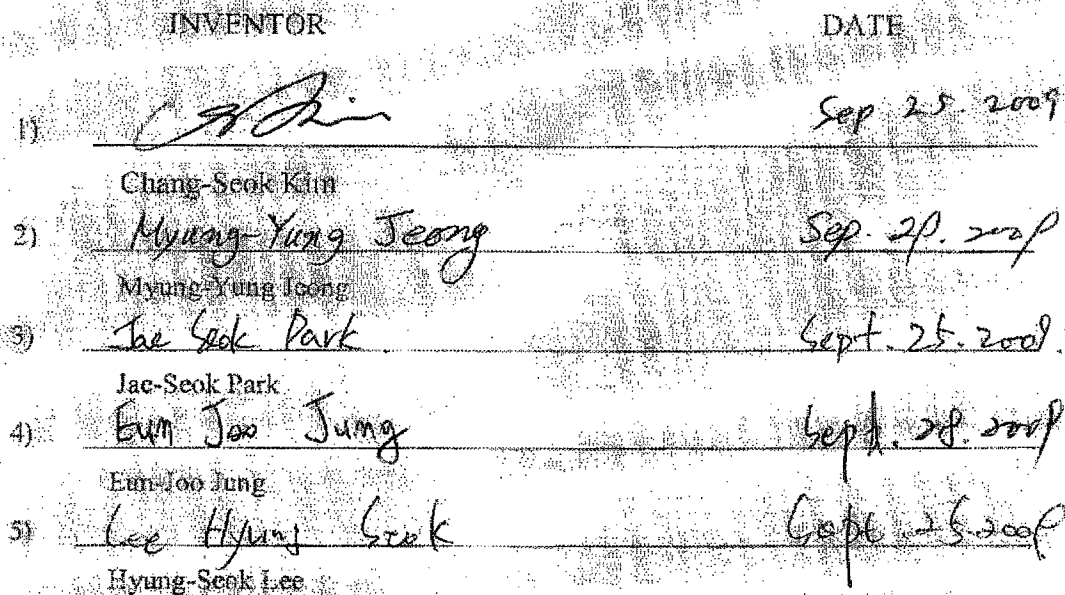 INVENTOR DATE
1) Sep 25. 2009
Chang-Seok Kim
2) Myung-Yung Jeong Sep. 28. 2009
Myung-Yung Jeong
3) Jae Seok Park Sept. 25. 2009.
Jae-Seok Park
4) Eun Joo Jung Sept. 28. 2009
Eun-Joo Jung
5) Lee Hyung Seok Sept 25. 2009
Hyung-Seok Lee